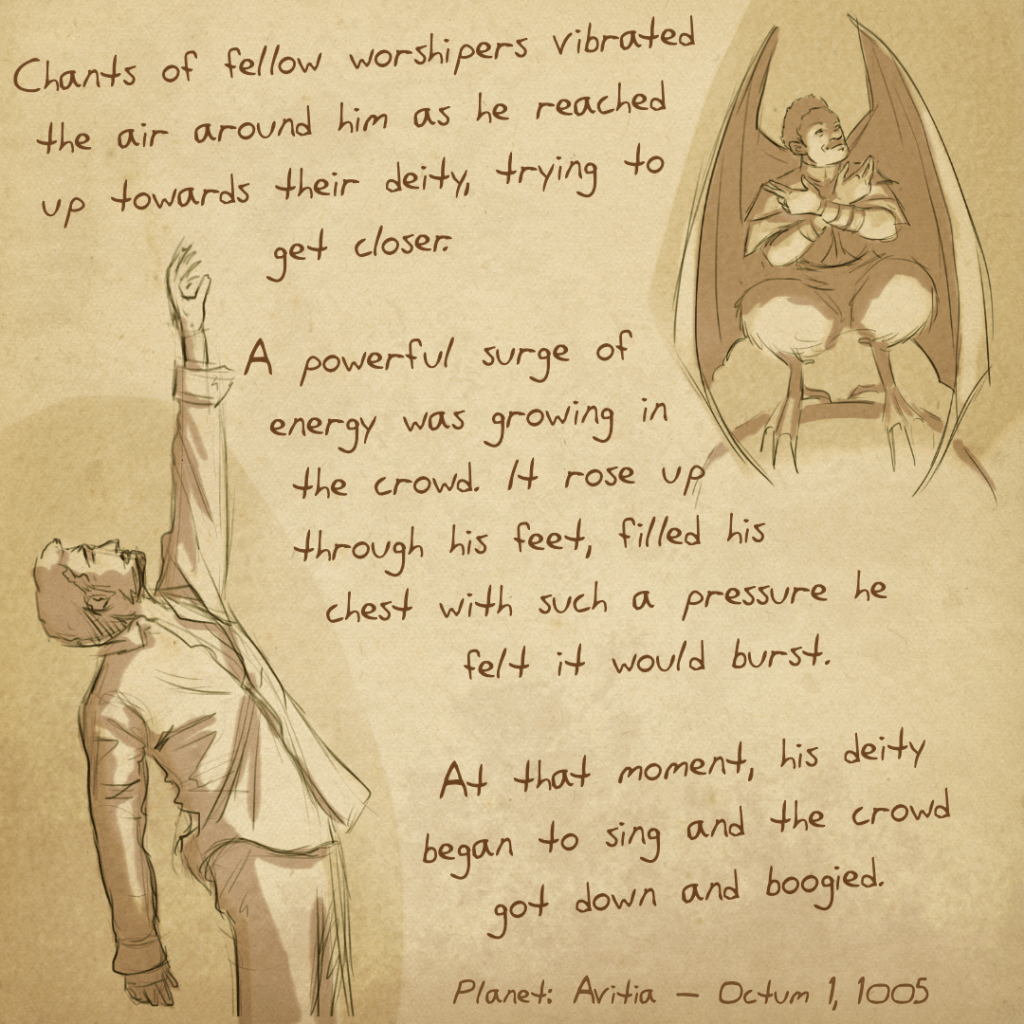 Chants of fellow worshipers vibrated
the air around him as he reached
up towards their deity, trying to
get closer.
A powerful surge of
energy was growing in
the crowd. It rose up
through his feet, filled his
chest with such a pressure he
felt it would burst.
At that moment, his deity
began to sing and the crowd
got down and boogied.
Planet: Avitia – Octum 1, 1005